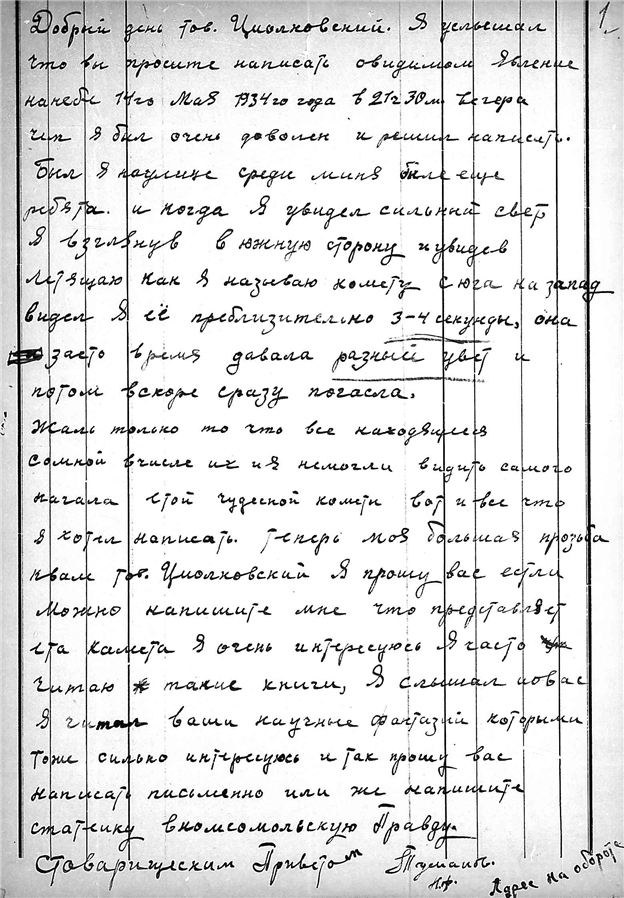 1
Добрый день тов. Циолковский. Я услышал
что вы просите написать овидимом явление
нанебе 14го Мая 1934го года в 21ч 30м. вечера
чем я был очень доволен и решил написать.
Был я наулице среди миня были еще
ребята. и когда я увидел сильный свет
я взглянув в южную сторону и увидев
летящаю как я называю комету с юга на запад
видел я её преблизительно 3-4 секунды, она
засто время давала разный цвет и
потом вскоре сразу погасла.
Жаль только то что все находящиеся
сомной вчисле их ия немогли видить самого
начала етой чудесной комети вот и все что
я хотел написать. теперь моя большая прозьба
квам тов. Циолковский я прошу вас естли
можно напишите мне что представляет
ета камета я очень интересуюсь я часто
читаю такие книги, я слышал ловас
я читал ваши научные фантазии которыми
тоже сильно интересуюсь и так прошу вас
написать письменно или же напишите
статейку вкомсомольскую Правду.
Стоварищеским Приветом
Адрес на обороте